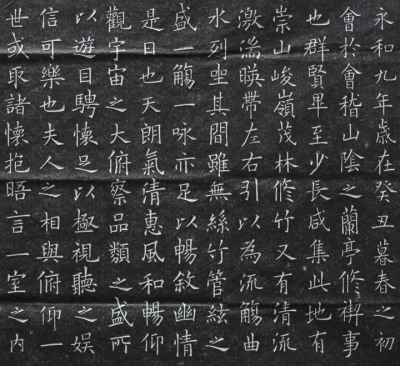 永和九年歲在癸丑暮春之初
會於會稽山陰之蘭亭修禊事
也群賢畢至少長咸集此地有
崇山峻嶺茂林修竹又有清流
激湍暎帶左右引以為流觴曲
水列坐其間雖無絲竹管絃之
盛一觴一咏亦足以暢敘幽情
是日也天朗氣清惠風和暢仰
觀宇宙之大俯察品類之盛所
以遊目騁懷足以極視聽之娛
信可樂也夫人之相與俯仰一
世或取諸懷抱晤言一室之內